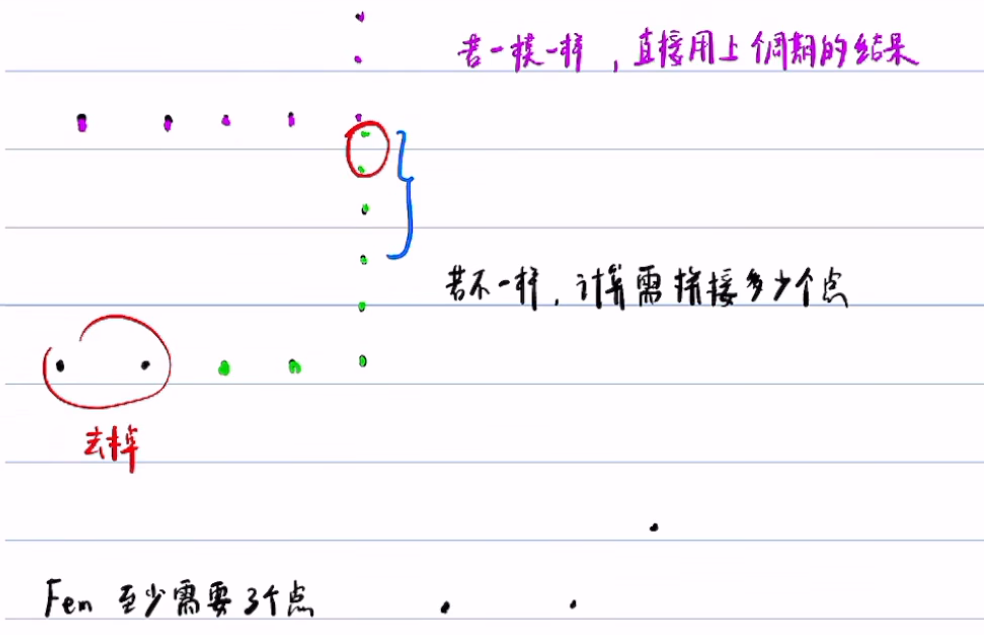 若一模一样，直接用上个周期的结果
若不一样，计算需拼接多少个点
去掉
Fem 至少需要3个点